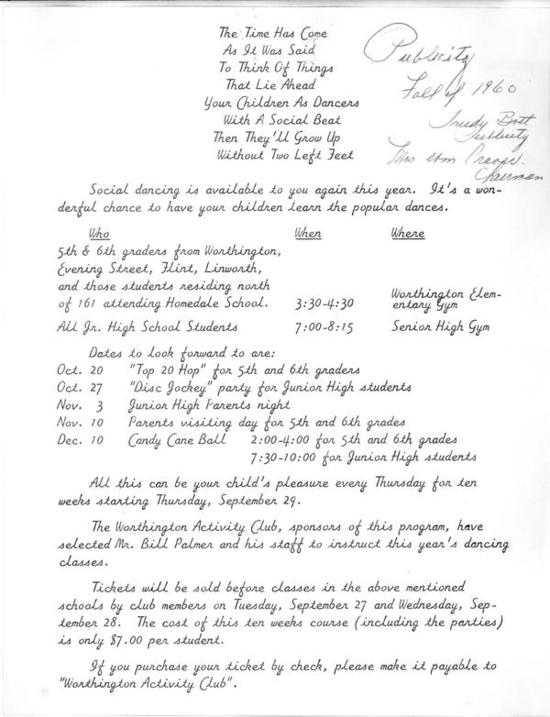 The Time Has Come
As It Was Said
To Think Of Things
That Lie Ahead
Your Children As Dancers
With A Social Beat
Then They'll Grow Up
Without Two Left Feet
Publicity
Fall of 1960
Trudy Bott
Publicity
Mrs
Chairman
Social dancing is available to you again this year. It's a won-
derful chance to have your children learn the popular dances.
Who When Where
5th & 6th graders from Worthington,
Evening Street, Flint, Linworth,
and those students residing north
of 161 attending Homedale School. 3:30-4:30 Worthington Elem-
entary Gym
All Jr. High School Students 7:00-8:15 Senior High Gym
Dates to look forward to are:
Oct. 20 "Top 20 Hop" for 5th and 6th graders
Oct. 27 "Disc Jockey" party for Junior High students
Nov. 3 Junior High Parents night
Nov. 10 Parents visiting day for 5th and 6th grades
Dec. 10 Candy Cane Ball 2:00-4:00 for 5th and 6th grades
7:30-10:00 for Junior High students
All this can be your child's pleasure every Thursday for ten
weeks starting Thursday, September 29.
The Worthington Activity Club, sponsors of this program, have
selected Mr. Bill Palmer and his staff to instruct this year's dancing
classes.
Tickets will be sold before classes in the above mentioned
schools by club members on Tuesday, September 27 and Wednesday, Sep-
tember 28. The cost of this ten weeks course (including the parties)
is only $7.00 per student.
If you purchase your ticket by check, please make it payable to
"Worthington Activity Club".